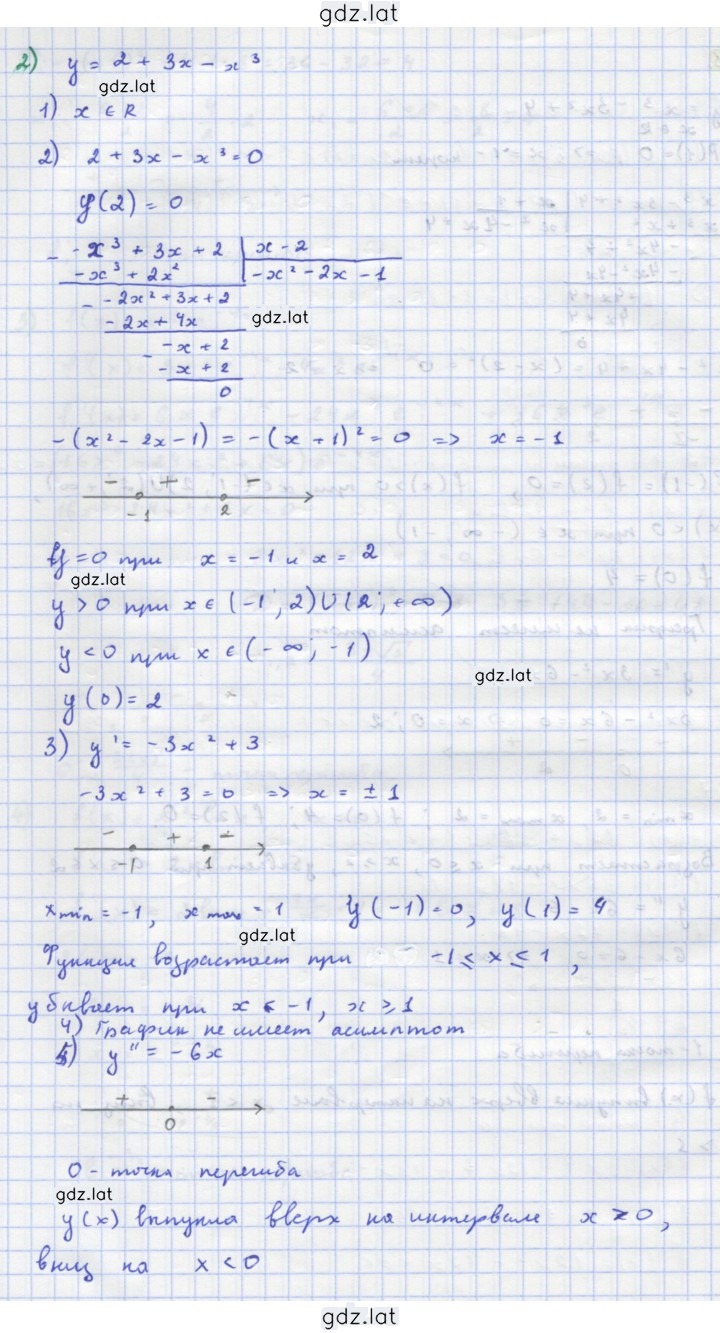 gdz.lat
2) y = 2 + 3x - x³
gdz.lat
1) x ∈ R
2) 2 + 3x - x³ = 0
y(2) = 0
- -x³ + 3x + 2 | x - 2
-x³ + 2x² | -x² - 2x - 1
- -2x² + 3x + 2
-2x + 4x gdz.lat
- -x + 2
-x + 2
0
-(x² - 2x - 1) = -(x + 1)² = 0 => x = -1
- + -
-1 2
y = 0 при x = -1 и x = 2
gdz.lat
y > 0 при x ∈ (-1; 2) ∪ (2; +∞)
y < 0 при x ∈ (-∞; -1)
gdz.lat
y(0) = 2
3) y' = -3x² + 3
-3x² + 3 = 0 => x = ± 1
- + -
-1 1
xmin = -1, xmax = 1 y(-1) = 0, y(1) = 4
gdz.lat
Функция возрастает при -1 ≤ x ≤ 1,
убывает при x < -1, x ≥ 1
4) График не имеет асимптот
5) y'' = -6x
+ -
0
0 - точка перегиба
gdz.lat
y(x) выпукла вверх на интервале x > 0,
вниз на x < 0
gdz.lat